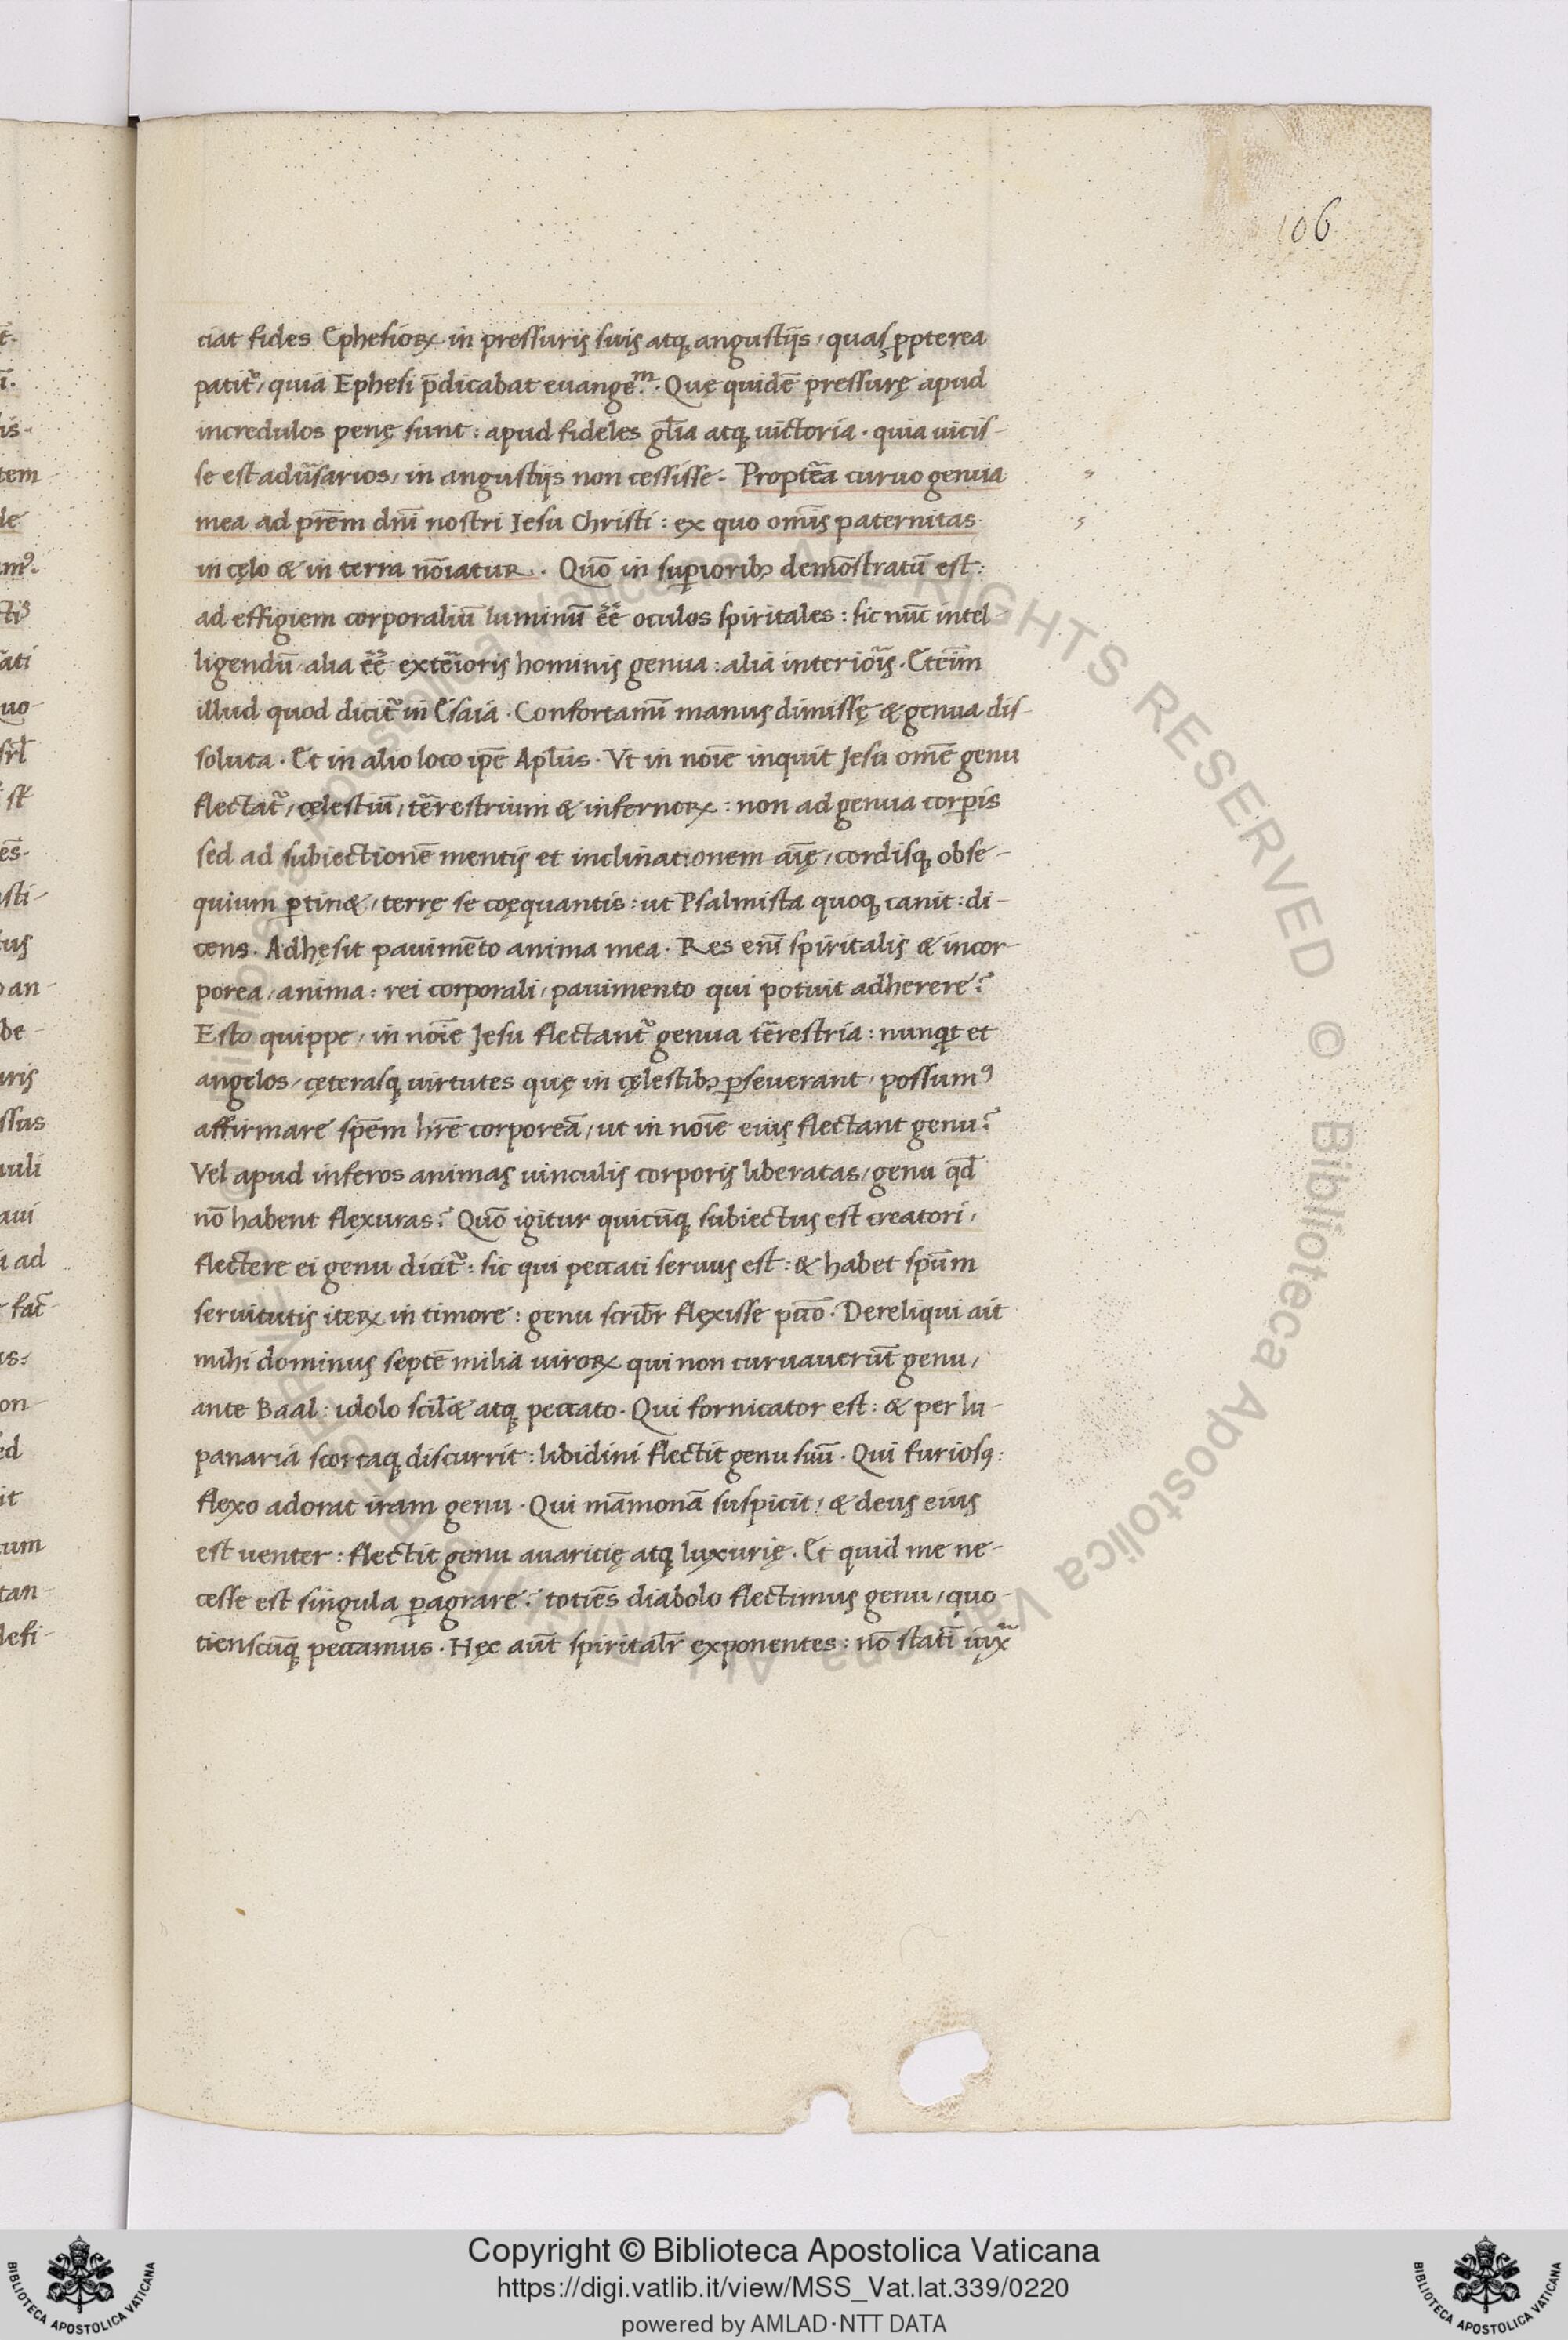 106
ciat fides Ephesioꝝ in pressuris suis atqꝫ angustijs, quas ꝓpterea
patit᷑, quia Ephesi p̄dicabat euangeᵐ. Quę quidē pressurę apud
incredulos penę sunt: apud fideles gl̄ia atqꝫ uictoria. quia uicis-
se est adũsarios, in angustijs non cessisse. Proptẽa curuo genua
mea ad prēm dn̄i nostri Iesu Christi: ex quo omīs paternitas
in cęlo & in terra nōiatur. Quō in suꝑioribꝫ demōstratū est:
ad effigiem corporaliū luminū eē oculos spiritales: sic nūc intel-
ligendū alia eē extẽioris hominis genua: alia interiõis. Eteīm
illud quod dicit᷑ in Esaia. Confortamī manus dimissę & genua dis-
soluta. Et in alio loco ip̄e Apl̄us. Vt in noīe inquit Jesu omē genu
flectat᷑, cęlestiū, tẽrestrium & infernoꝝ: non ad genua corꝑis
sed ad subiectionē mentis et inclinationem aīę, cordisqꝫ obse-
quium ꝑtin&, terrę se coęquantis: ut Psalmista quoqꝫ canit: di-
cens. Adhęsit pauimēto anima mea. Res enī spiritalis & incor-
porea, anima: rei corporali, pauimento qui potuit adherere?
Esto quippe, in noīe Jesu flectant᷑ genua tẽrestria: nunqͥt et
angelos, cęterasqꝫ uirtutes quę in cęlestibꝫ ꝑseuerant, possumꝰ
affirmare spēm hr̄e corporeā, ut in noīe eius flectant genu?
Vel apud inferos animas uinculis corporis liberatas, genu qd̄
nō habent flexuras? Quō igitur quicūqꝫ subiectus est creatori,
flectere ei genu dicit᷑: sic qui peccati seruus est: & habet spūm
seruitutis iteꝝ in timore: genu scribr̄ flexisse pccō. Dereliqui ait
mihi dominus septē milia uiroꝝ qui non curuauerūt genu,
ante Baal: idolo scil& atqꝫ peccato. Qui fornicator est: & per lu-
panaria scortaqꝫ discurrit: libidini flectit genu suū. Qui furiosꝰ:
flexo adorat iram genu. Qui māmonā suspicit, & deus eius
est uenter: flectit genu auaricię atqꝫ luxurię. Et quid me ne-
cesse est singula ꝑagrare? totiēs diabolo flectimus genu, quo-
tienscūqꝫ peccamus. Hęc aūt spiritalr̄ exponentes: nō statī iuxᵃ
Copyright © Biblioteca Apostolica Vaticana
https://digi.vatlib.it/view/MSS_Vat.lat.339/0220
powered by AMLAD·NTT DATA